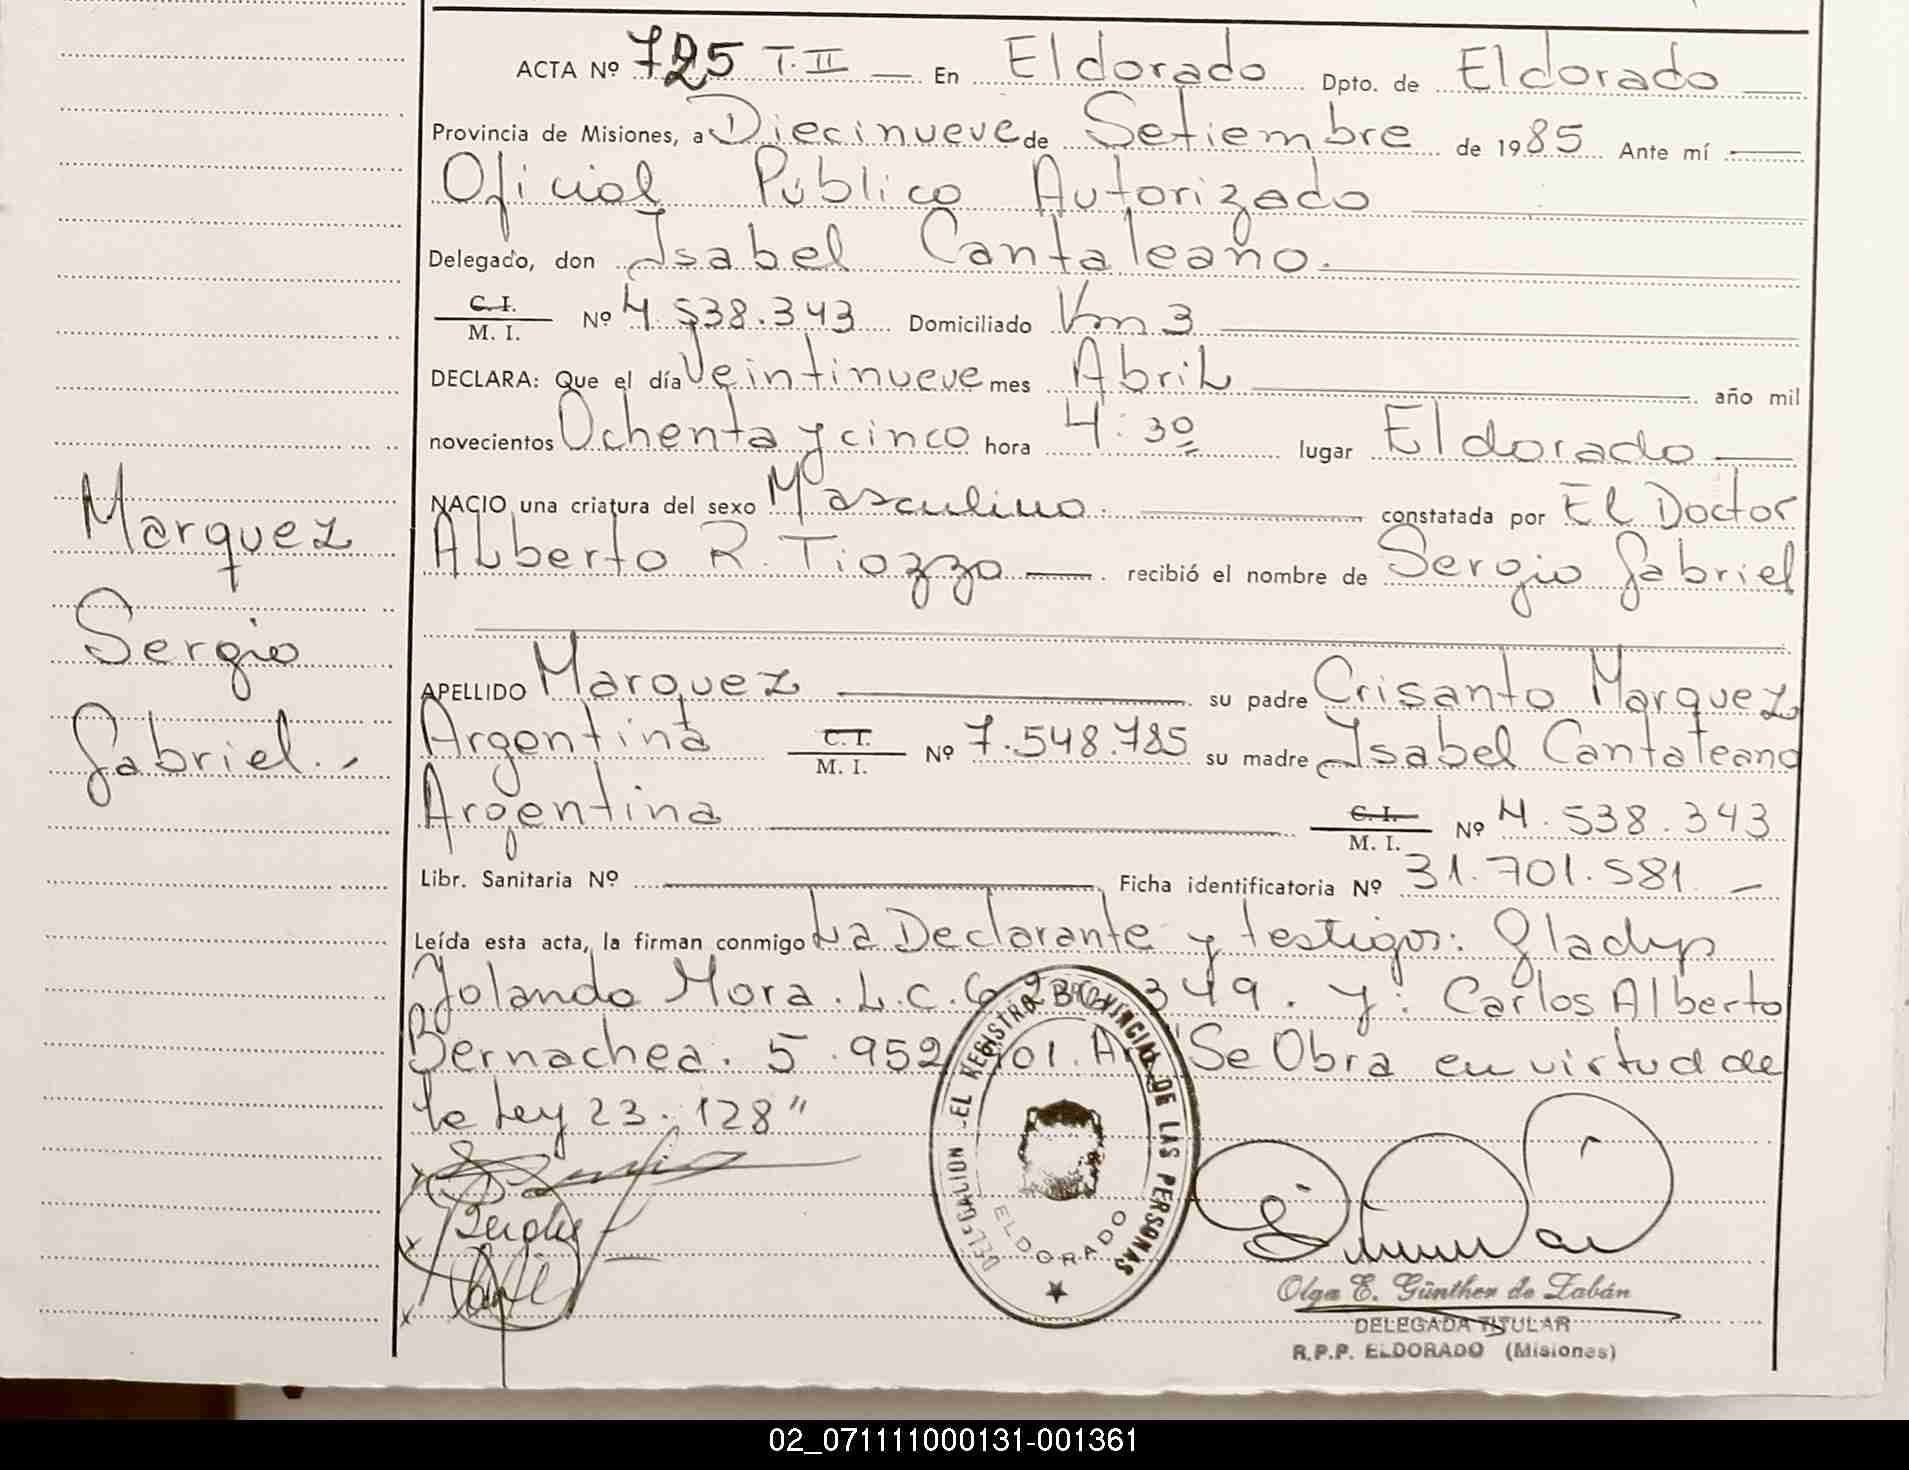 ACTA Nº 725 T.II En Eldorado Dpto. de Eldorado
Provincia de Misiones, a Diecinueve de Setiembre de 1985 Ante mí
Oficial Público Autorizado
Delegado, don Isabel Cantaleano.
C.I. / M. I. Nº 4.538.343 Domiciliado Km 3
DECLARA: Que el día Veintinueve mes Abril año mil
novecientos Ochenta y cinco hora 4:30 lugar Eldorado
NACIO una criatura del sexo Masculino. constatada por El Doctor
Alberto R. Tiozzo recibió el nombre de Sergio Gabriel
APELLIDO Marquez su padre Crisanto Marquez
Argentina C.I. / M. I. Nº 7.548.785 su madre Isabel Cantaleano
Argentina C.I. / M. I. Nº 4.538.343
Libr. Sanitaria Nº Ficha identificatoria Nº 31.701.581.
Leída esta acta, la firman conmigo La Declarante y testigos: Gladys
Yolanda Mora. L.C. 349. y: Carlos Alberto
Bernachea. 5.952 101. "Se Obra en virtud de
la Ley 23.128"
Marquez
Sergio
Gabriel.-
DELEGACION -EL REGISTRO PROVINCIAL DE LAS PERSONAS
ELDORADO
Olga E. Günther de Zabán
DELEGADA TITULAR
R.P.P. ELDORADO (Misiones)
02_071111000131-001361